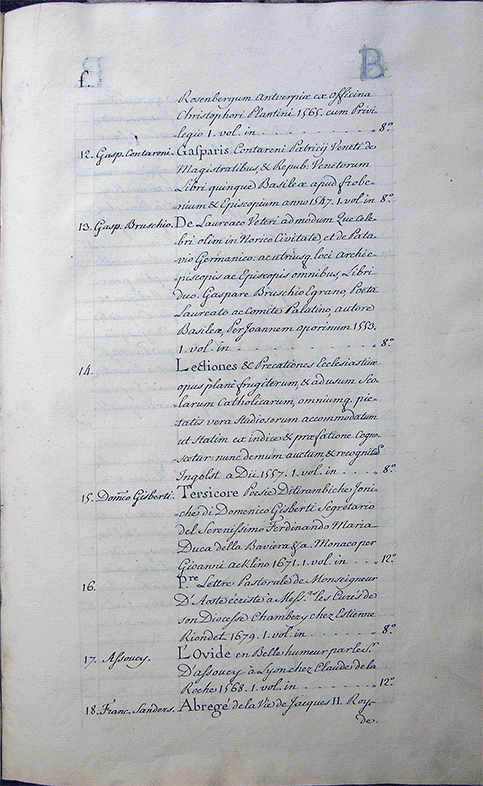 f. B
Rosenbergum Antverpiæ ex Officina
Christophori Plantini 1565. cum Privi-
legio 1. vol. in . . . . . . . . 8º
12. Gasp. Contareni. Gasparis Contareni Patricij Veneti de
Magistratibus, & Repub. Venetorum
Libri quinque Basileæ apud Frobe-
nium & Episcopium anno 1547. 1. vol. in 8º
13. Gasp. Bruschio. De Laureaco Veteri admodum que Cele-
bri olim in Norico Civitate, et de Pata-
vio Germanico: ac utriusq. loci Archie-
piscopis ac Episcopis omnibus, Libri
duo. Gaspare Bruschio Egrano, Poeta
Laureato ac Comite Palatino, autore
Basileæ, Per Joannem oporinum 1553.
1. vol. in . . . . . . . . 8º
14. Lectiones & Precationes Ecclesiastiæ
opus planè frugiferum, & ad usum Sco-
larum Catholicarum, omniumq. pie-
tatis vera Studiosorum accommodatum
ut Statim ex indice & præfatione Cogno-
scetur: nunc demum auctum, & recognitũ
Ingolst. a Dii 1557. 1. vol. in . . . . 8º
15. Domco Gisberti. Tersicore Poesie Ditirambiche Joni-
che di Domenico Gisberti Segretario
del Serenissimo Ferdinando Maria
Duca della Baviera & a. Monaco per
Gioanni Jecklino 1671. 1. vol. in . . . 12º
16. Pre Lettre Pastorale de Monseigneur
D'Aoste écriste à Mess.rs les Curés de
son Diocesse Chambery chez Estienne
Riondet 1679. 1. vol. in . . . . . . 8º
17. Assoucy. L'Ovide en Belle humeur par le Sr.
D'assoucy à Lyon chez Claude de la
Roche 1568. 1. vol. in . . . . . . 12º
18. Franc. Sanders. Abregé de la Vie de Jacques II. Roy-
de.